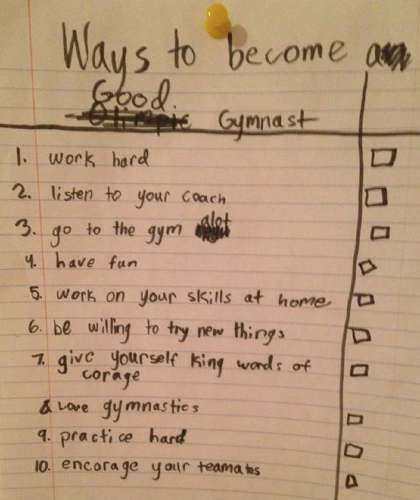 Ways to become a
Good.
Olimpic Gymnast
1. work hard
2. listen to your coach
3. go to the gym alot
4. have fun
5. work on your skills at home
6. be willing to try new things
7. give yourself king words of
corage
8 Love gymnastics
9. practice hard
10. encorage your teamates